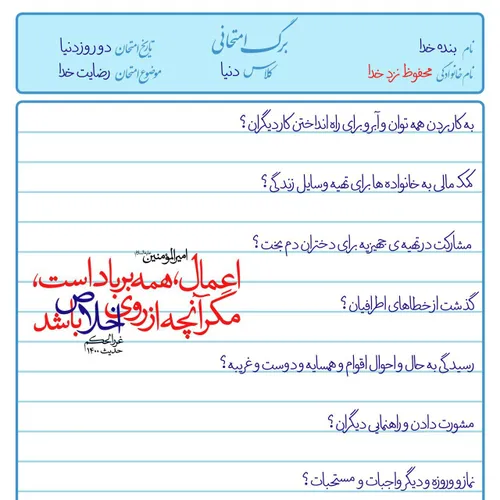 برگ امتحانی
نام بنده خدا
تاریخ امتحان دو روز دنیا
نام خانوادگی محفوظ نزد خدا
کلاس دنیا
موضوع امتحان رضایت خدا
به کار بردن همه توان و آبرو برای راه انداختن کار دیگران؟
کمک مالی به خانواده ها برای تهیه وسایل زندگی؟
مشارکت در تهیه ی جهیزیه برای دختران دم بخت؟
گذشت از خطاهای اطرافیان؟
رسیدگی به حال و احوال اقوام و همسایه و دوست و غریبه؟
مشورت دادن و راهنمایی دیگران؟
نماز و روزه و دیگر واجبات و مستحبات؟
امیرالمؤمنین علیه‌السلام
اعمال، همه بر باد است،
مگر آنچه از روی اخلاص باشد
غررالحکم
حدیث ۱۴۰۰